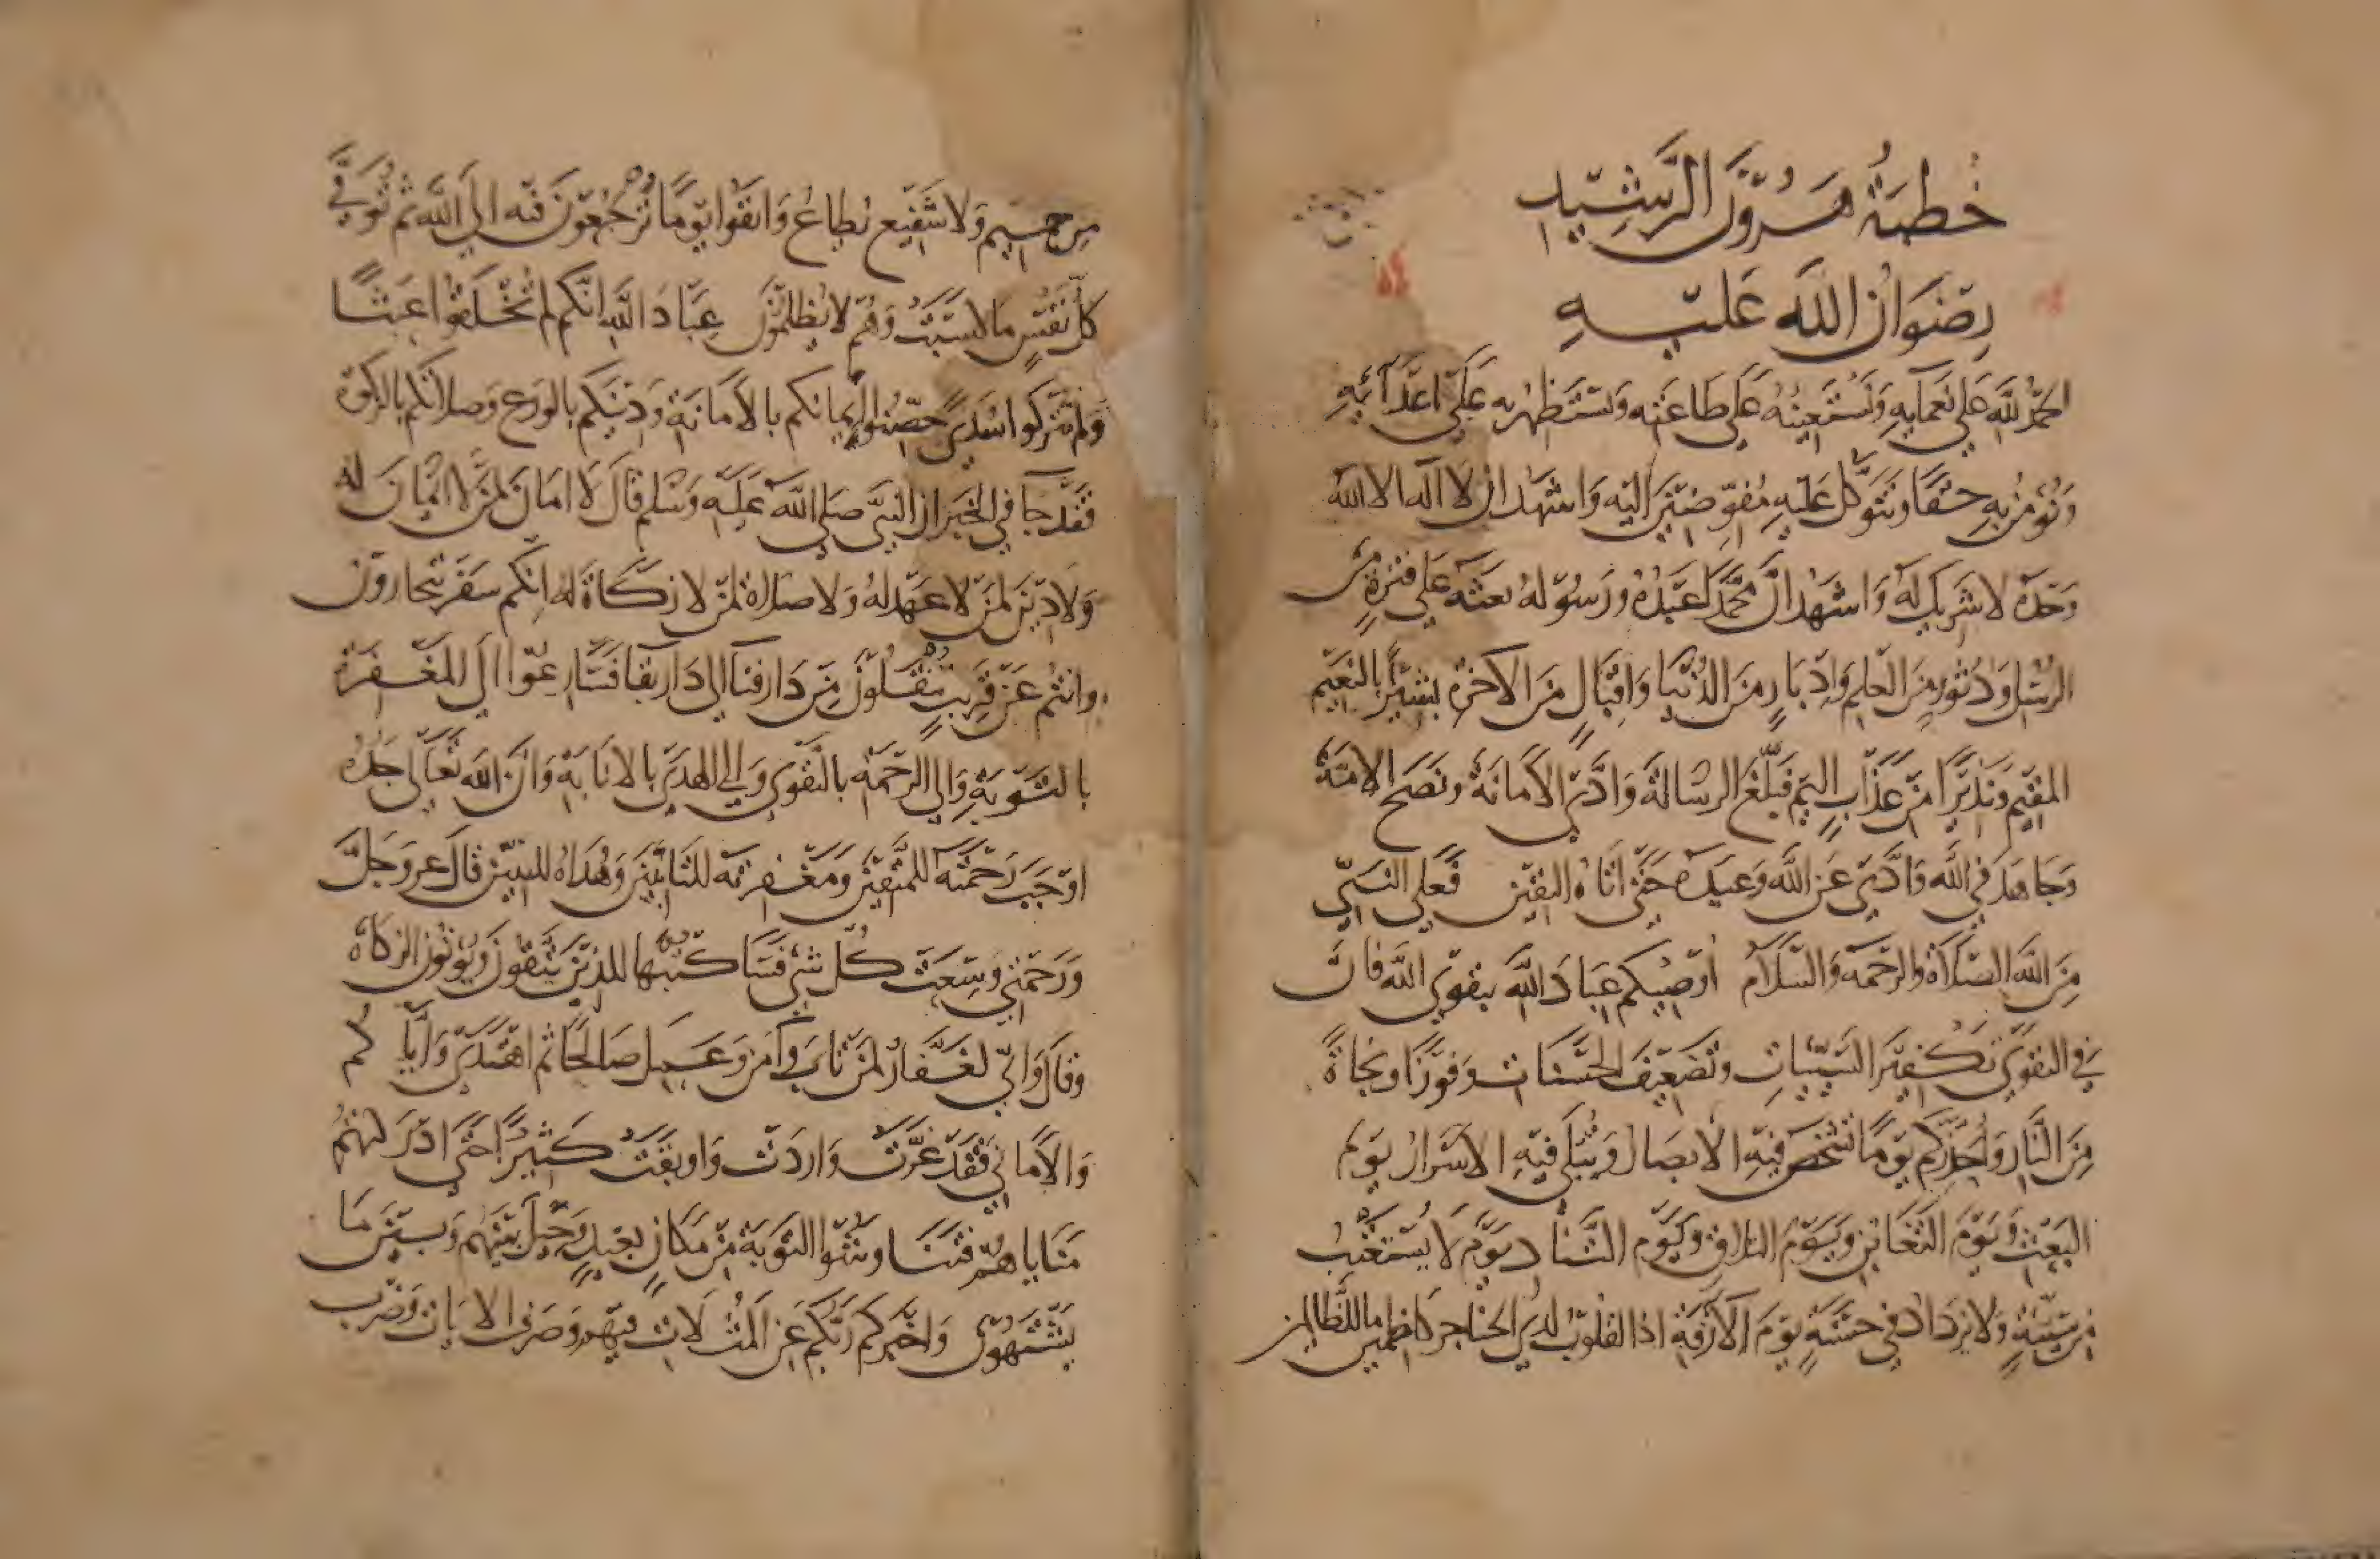 خطبة هرون الرشيد
رضوان الله عليه
الحمد لله على نعمايه ونستعينه على طاعته ونستنظهر به على اعدآئه
ونؤمن به حقا ونتوكل عليه مفوضين اليه واشهد ان لا اله الا الله
وحده لا شريك له واشهد ان محمدا عبده ورسوله بعثه على فترة من
الرسل ودثور من العلم وادبار من الدنيا واقبال من الاخرة بشيرا بالنعيم
المقيم ونذيرا من عذاب اليم فبلغ الرسالة وادى الامانة ونصح الامة
وجاهد في الله وادى عن الله وعيده حتى اتاه اليقين فعلى النبي
من الله الصلاة والرحمة والسلام اوصيكم عباد الله بتقوى الله فان
في التقوى تكفير السيئات وتضعيف الحسنات وفوزا ونجاة
من النار واحذركم يوما تشخص فيه الابصار وتبلى فيه الاسرار يوم
البعث ويوم التغابن ويوم التلاق ويوم التناد يوم لا يستعتب
من سيئة ولا يزداد في حسنة يوم الآزفة اذ القلوب لدى الحناجر كاظمين ما للظالمين
من حميم ولا شفيع يطاع واتقوا يوما ترجعون فيه الى الله ثم توفى
كل نفس ما كسبت وهم لا يظلمون عباد الله انكم لم تخلقوا عبثا
ولم تتركوا سدى حصنوا ايمانكم بالامانة ودينكم بالورع وصلاتكم بالزكوة
فقد جآ في الخبر ان النبي صلى الله عليه وسلم قال لا امان لمن لا ايمان له
ولا دين لمن لا عهد له ولا صلاة لمن لا زكاة له انكم سفر تجارون
وانتم عن قريب تنقلون من دار فنآ الى دار بقآ فسارعوا الى المغفرة
بالتوبة والى الرحمة بالتقوى والى الهدى بالانابة وان الله تعالى جده
اوجب رحمته للمتقين ومغفرته للتائبين وهداه للمنيبين قال عز وجل
ورحمتي وسعت كل شيء فسأكتبها للذين يتقون ويؤتون الزكاة
وقال واني لغفار لمن تاب وآمن وعمل صالحا ثم اهتدى واياكم
والاماني فقد غرت واردت واوبقت كثيرا حتى ادركتهم
مناياهم فتنا وشوا التوبة من مكان بعيد وحيل بينهم وبين ما
يشتهون واخبركم ربكم عن المثلات فيهم وصرف الايات وضرب